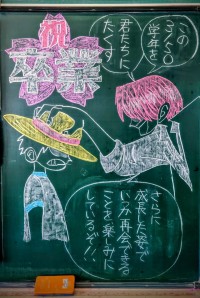 祝
卒業
この
学年を
君たちに
たくす
さらに
成長した姿で
いつか再会できる
ことを楽しみに
しているぞ!!